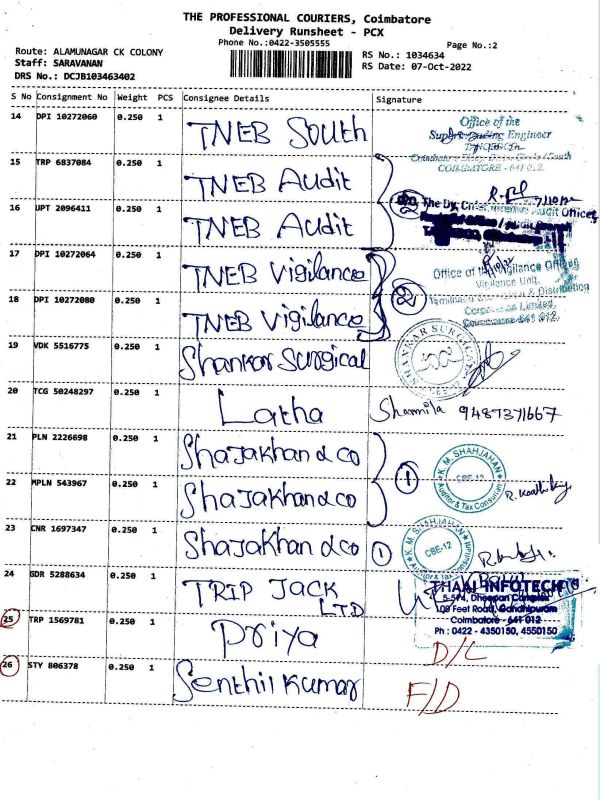 THE PROFESSIONAL COURIERS, Coimbatore
Delivery Runsheet - PCX
Phone No.:0422-3505555
Page No.:2
Route: ALAMUNAGAR CK COLONY
Staff: SARAVANAN
DRS No.: DCJB103463402
RS No.: 1034634
RS Date: 07-Oct-2022
S No Consignment No Weight PCS Consignee Details Signature
14 DPI 10272060 0.250 1 TNEB South
Office of the
Engineer
South
COIMBATORE - 641 012.
15 TRP 6837084 0.250 1 TNEB Audit
16 UPT 2096411 0.250 1 TNEB Audit
2 The Dy. Audit Officer
17 DPI 10272064 0.250 1 TNEB Vigilance
18 DPI 10272080 0.250 1 TNEB Vigilance
2
Office of Vigilance
Vigilance Unit,
& Distribution
Limited,
Coimbatore 641 012.
19 VDK 5516775 0.250 1 Shankar Surgical
SHANKAR SURGICAL
20 TCG 50248297 0.250 1 Latha Sharmila 9487371667
21 PLN 2226698 0.250 1 Shajakhan & co
22 MPLN 543967 0.250 1 Shajakhan & co
1
K. M. SHAHJAHAN
CBE-12
Auditor & Tax Consultant
23 CNR 1697347 0.250 1 Shajakhan & co 1
K. M. SHAHJAHAN
CBE-12
Auditor & Tax
24 GDR 5288634 0.250 1 TRIP JACK LTD
THAAI INFOTECH
5-5/4, Dheepan Complex
109 Feet Road, Gandhipuram
Coimbatore - 641 012
Ph : 0422 - 4350150, 4550150
25 TRP 1569781 0.250 1 Priya D/L
26 STY 806378 0.250 1 Senthil Kumar F/D